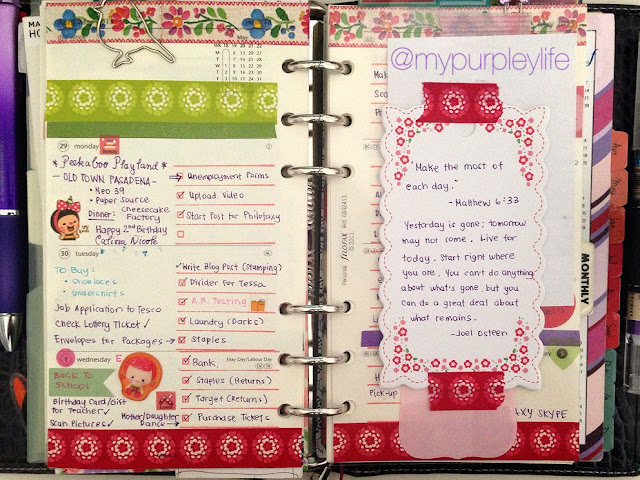 May
WK 18 19 20 21 22
29 monday
* Peekaboo Playland *
- OLD TOWN PASADENA -
• Neo 39
• Paper Source
Dinner: Cheesecake
Factory
Happy 2nd Birthday
Unemployment Forms
Upload Video
Start Post for Philofaxy
30 tuesday
TO Buy:
• Shoelaces
• undershirts
Job Application to Tesco
Check Lottery Ticket ✓
Envelopes for Packages →
✓Write Blog Post (Stamping)
Divider For Tessa
A.R. Testing
Laundry (Darks)
Staples
1 wednesday E
May Day/Labour Day
BACK TO
School
Birthday Card/Gift
for Teacher ✓
Scan Pictures ✓
Mother/Daughter
Dance →
Bank
Staples (Returns)
Target (Returns)
Purchase Tickets
Personal filofax Ref. 68-12413
© 2011
@mypurpleylife
"Make the most of
each day."
- Matthew 6:33
Yesterday is gone; tomorrow
may not come. Live for
today. Start right where
you are. You can't do anything
about what's gone, but you
can do a great deal about
what remains.
-Joel Osteen
Pick-up
SKYPE
MONTHLY